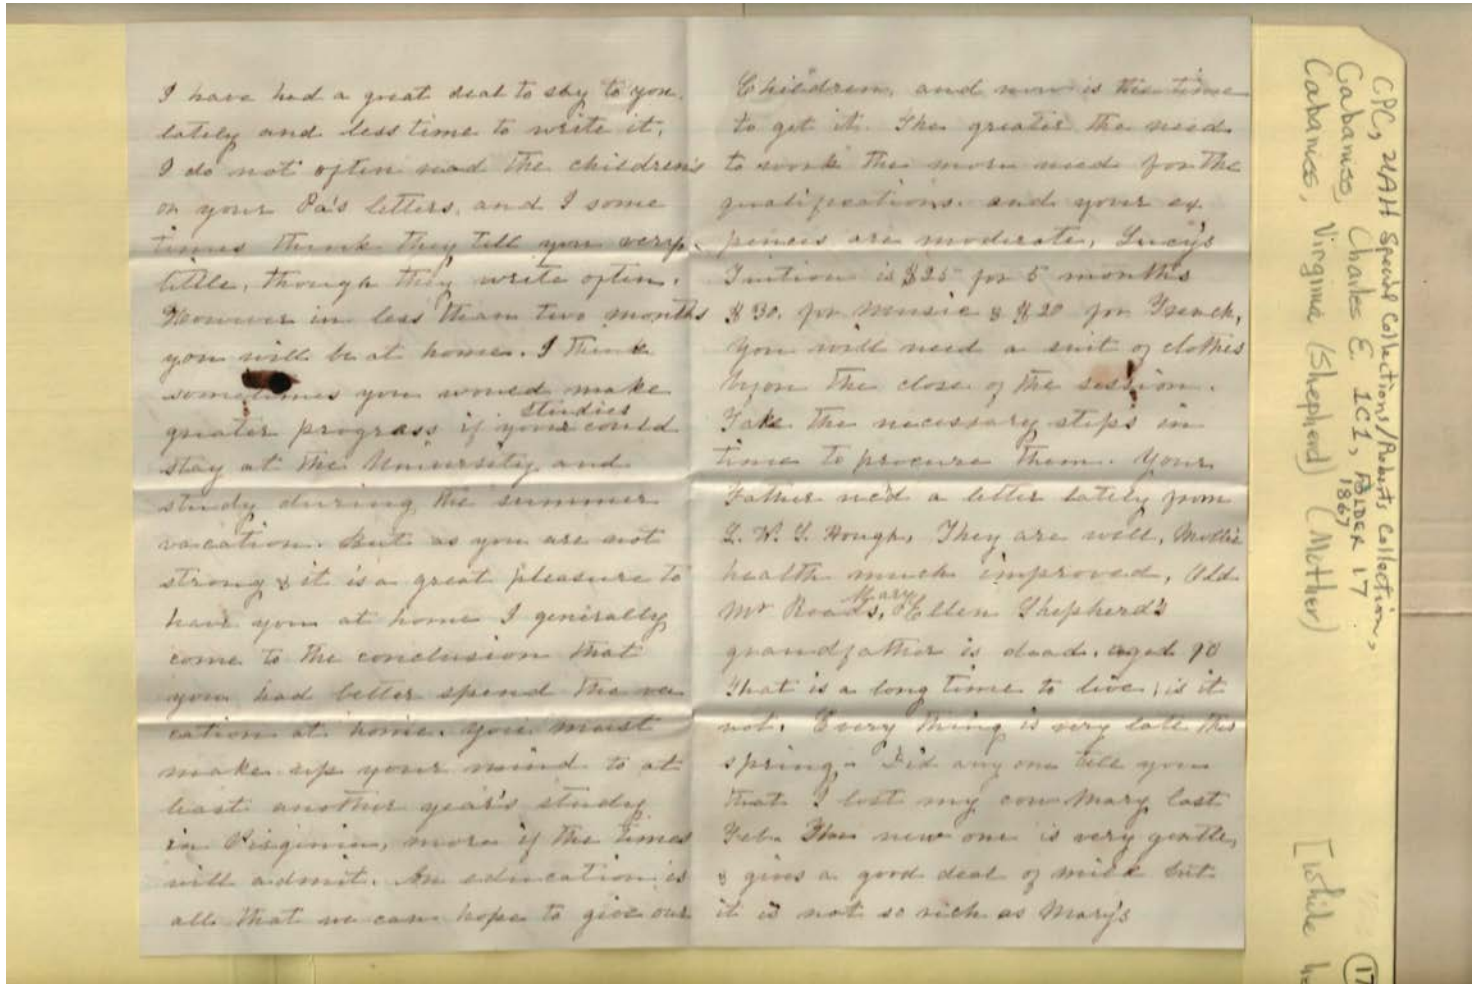 I have had a great deal to say to you
lately and less time to write it.
I do not often read the children's
or your Pa's letters, and I some
times think they tell you very
little, though they write often.
However in less than two months
you will be at home. I think
sometimes you would make
studies
greater progress if your could
stay at the University and
study during the summer
vacation. But as you are not
strong & it is a great pleasure to
have you at home I generally
come to the conclusion that
you had better spend the va
cation at home. You must
make up your mind to at
least another year's study
in Virginia, more if the times
will admit. An education is
all that we can hope to give our
Children, and now is the time
to get it. The greater the need
to work the more need for the
qualifications. and your ex
penses are moderate, Lucy's
Tuition is $25 for 5 months
$30. for Music & $20 for French,
You will need a suit of clothes
upon the close of the session.
Take the necessary steps in
time to procure them. Your
Father rec'd a letter lately from
L. W. S. Hough, They are well, Mollie
health much improved, Old
Mary
Mr Roads, Ellen Shepherd's
grandfather is dead. aged 90
that is a long time to live, is it
not. Every thing is very late this
spring. Did any one tell you
that I lost my cow Mary last
Feb. The new one is very gentle,
& gives a good deal of milk but
it is not so rich as Mary's
CPC, UAH Special Collections/Roberts Collection,
Cabaniss, Charles E. 1C1, FOLDER 17
1867
Cabaniss, Virginia (Shepherd) (Mother)
[While
17